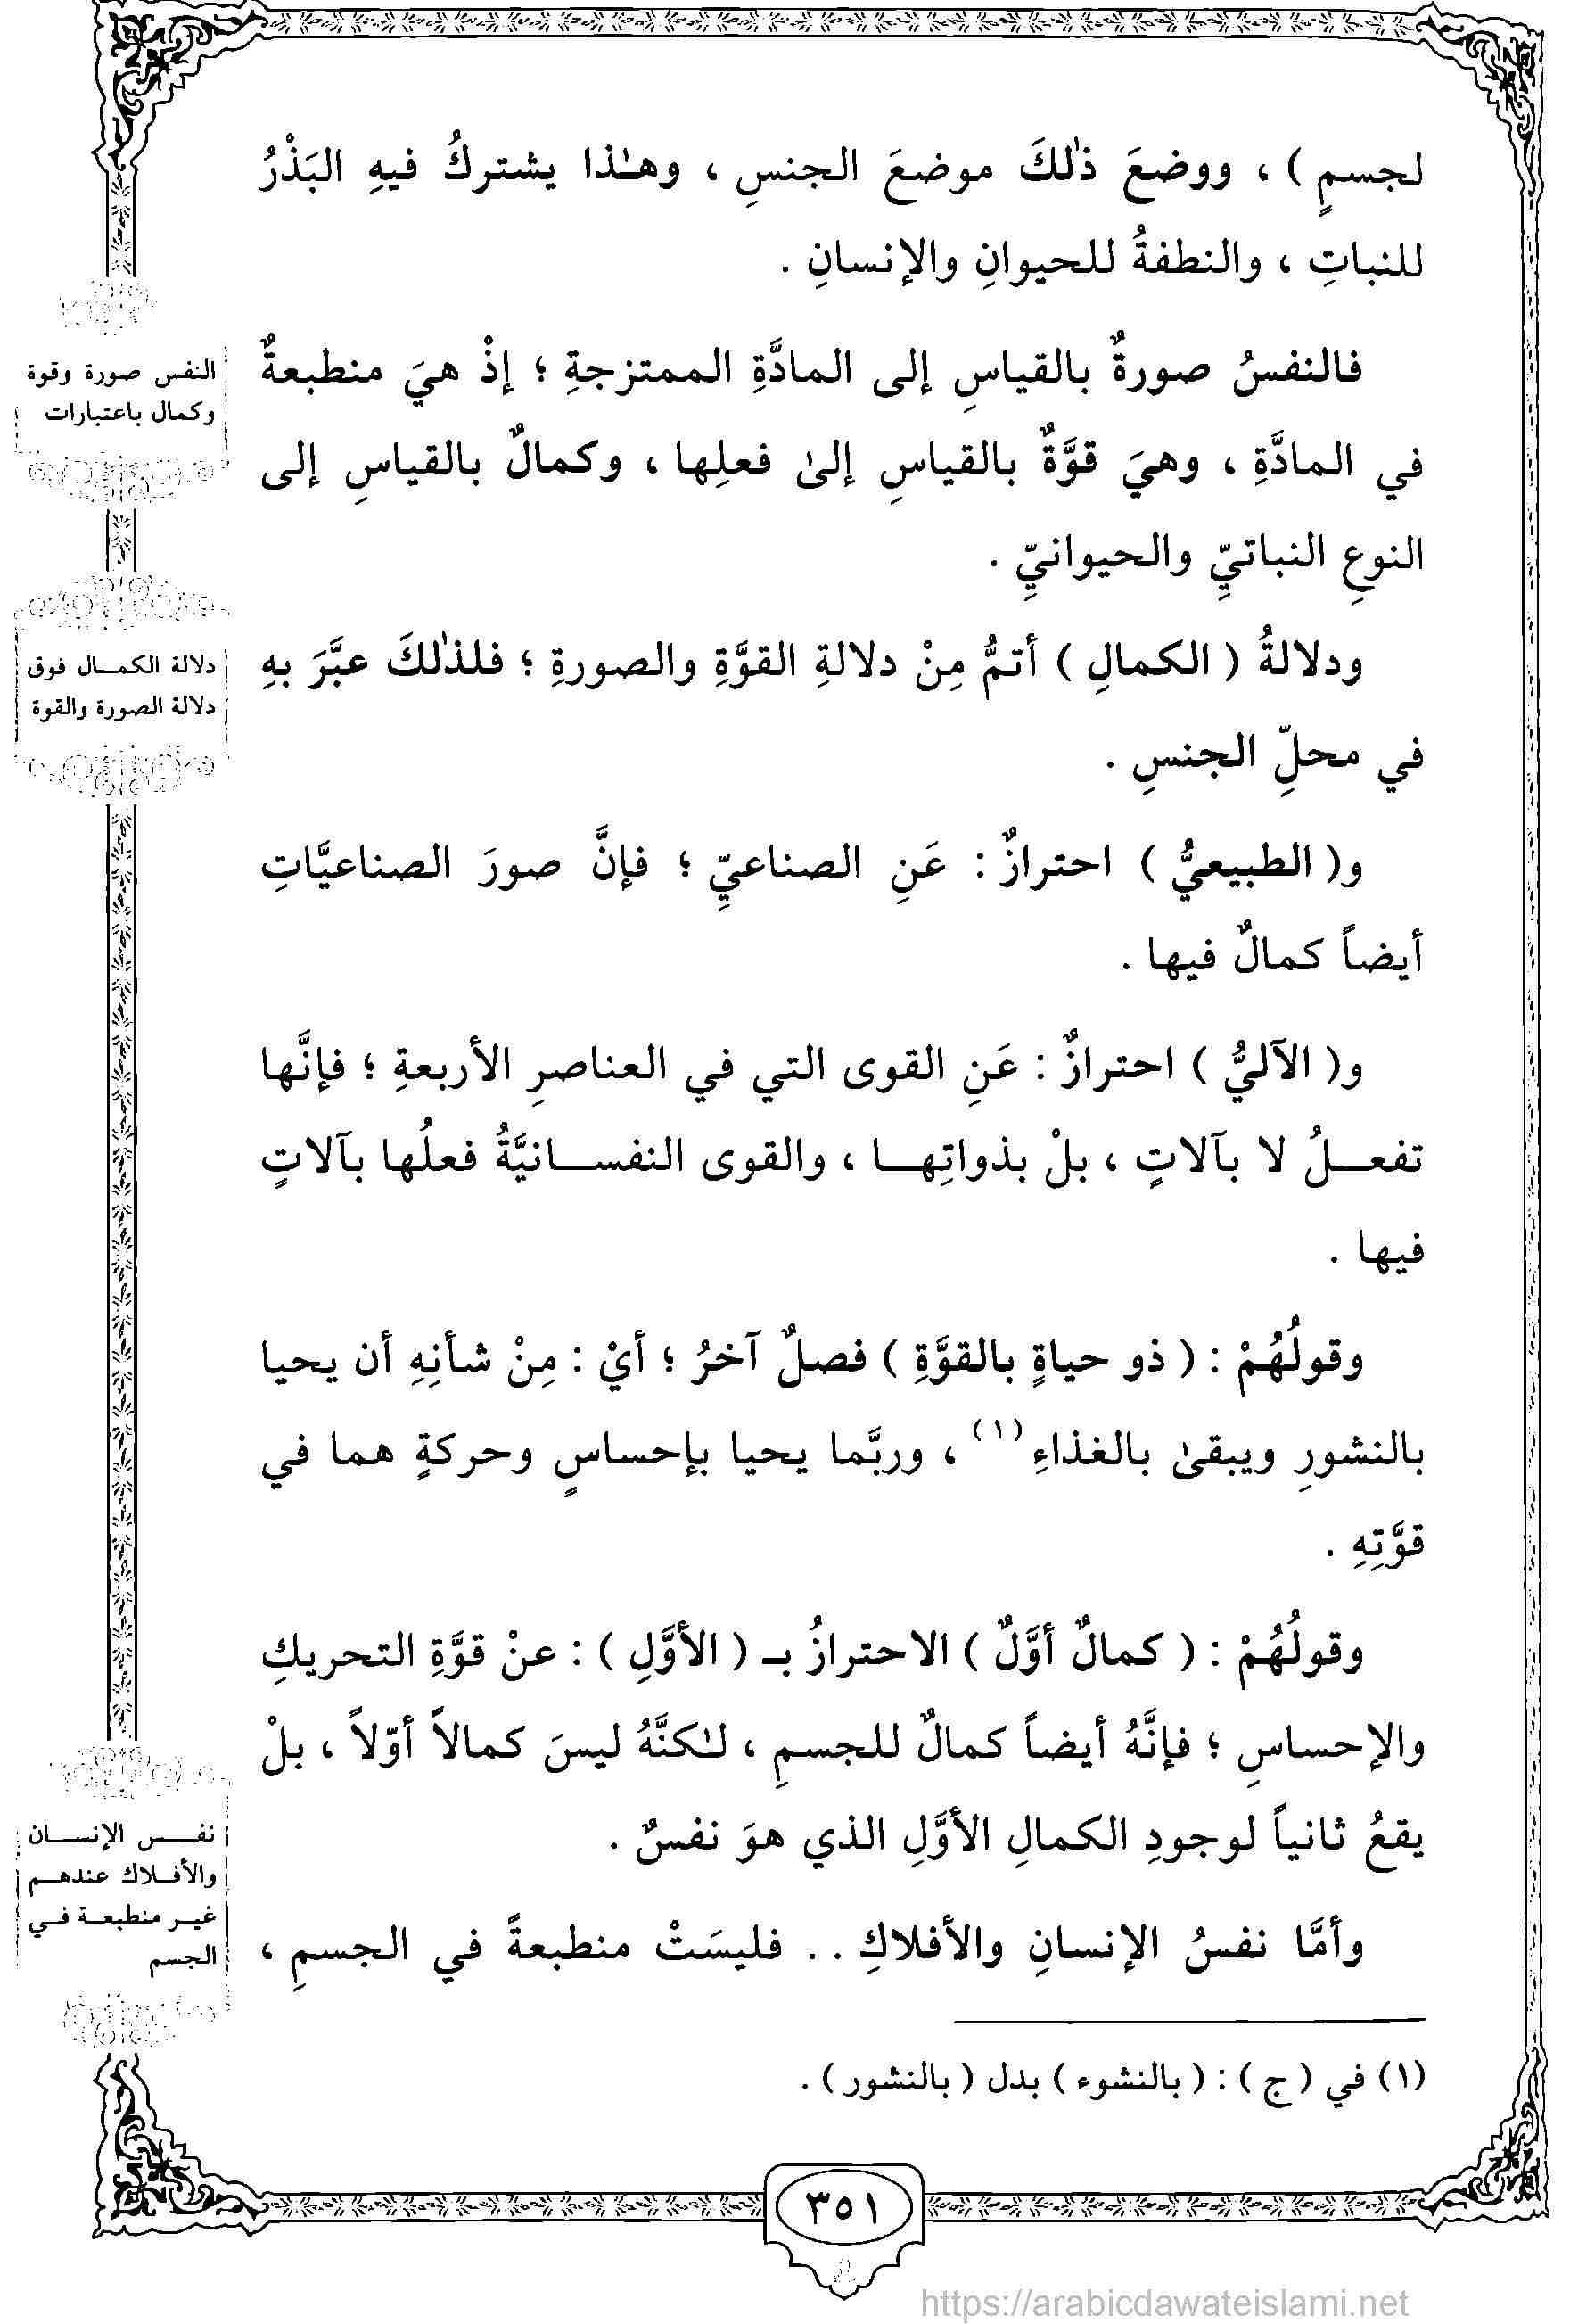 لجسمٍ ) ، ووضعَ ذٰلكَ موضعَ الجنسِ ، وهـٰذا يشتركُ فيهِ البَذْرُ
للنباتِ ، والنطفةُ للحيوانِ والإنسانِ .
فالنفسُ صورةٌ بالقياسِ إلى المادَّةِ الممتزجةِ ؛ إذْ هيَ منطبعةٌ
في المادَّةِ ، وهيَ قوَّةٌ بالقياسِ إلىٰ فعلِها ، وكمالٌ بالقياسِ إلى
النوعِ النباتيِّ والحيوانيِّ .
النفس صورة وقوة
وكمال باعتبارات
ودلالةُ ( الكمالِ ) أتمُّ مِنْ دلالةِ القوَّةِ والصورةِ ؛ فلذٰلكَ عبَّرَ بهِ
في محلِّ الجنسِ .
دلالة الكمـــال فوق
دلالة الصورة والقوة
و( الطبيعيُّ ) احترازٌ : عَنِ الصناعيِّ ؛ فإنَّ صورَ الصناعيَّاتِ
أيضاً كمالٌ فيها .
و( الآليُّ ) احترازٌ : عَنِ القوى التي في العناصرِ الأربعةِ ؛ فإنَّها
تفعـــلُ لا بآلاتٍ ، بلْ بذواتِهـــا ، والقوى النفســـانيَّةُ فعلُها بآلاتٍ
فيها .
وقولُهُمْ : ( ذو حياةٍ بالقوَّةِ ) فصلٌ آخرُ ؛ أيْ : مِنْ شأنِهِ أن يحيا
بالنشورِ ويبقىٰ بالغذاءِ (١) ، وربَّما يحيا بإحساسٍ وحركةٍ هما في
قوَّتِهِ .
وقولُهُمْ : ( كمالٌ أوَّلٌ ) الاحترازُ بـ ( الأوَّلِ ) : عنْ قوَّةِ التحريكِ
والإحساسِ ؛ فإنَّهُ أيضاً كمالٌ للجسمِ ، لـٰكنَّهُ ليسَ كمالاً أوّلاً ، بلْ
يقعُ ثانياً لوجودِ الكمالِ الأوَّلِ الذي هوَ نفسٌ .
وأمَّا نفسُ الإنسانِ والأفلاكِ . . فليسَتْ منطبعةً في الجسمِ ،
نفـــس الإنســـان
والأفـلاك عندهـــم
غيـر منطبعـة فـي
الجسم
(١) في ( ج ) : ( بالنشوء ) بدل ( بالنشور ) .
٣٥١
https://arabicdawateislami.net